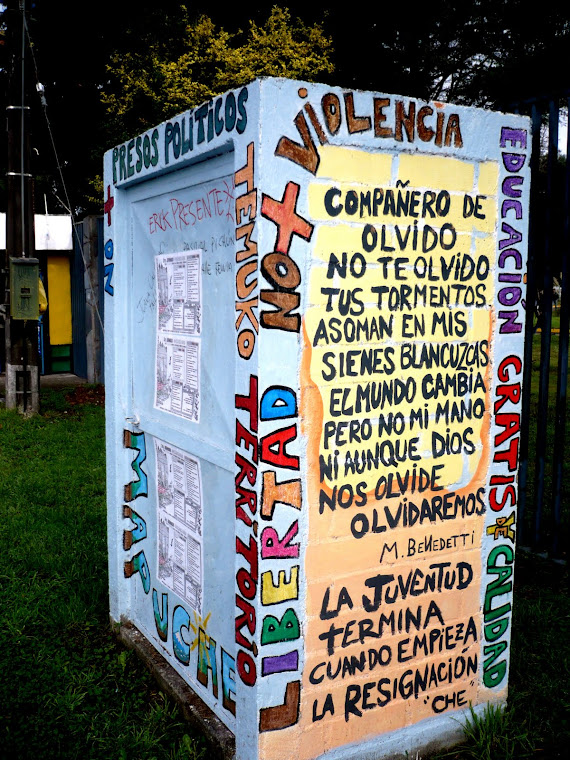 PRESOS POLÍTICOS
ERIK PRESENTE
NO +
TEMUKO
TERRITORIO
MAPUCHE
NO + VIOLENCIA
LIBERTAD
LIBERTAD
EDUCACIÓN GRATIS Y DE CALIDAD
COMPAÑERO DE
OLVIDO
NO TE OLVIDO
TUS TORMENTOS
ASOMAN EN MIS
SIENES BLANCUZCAS
EL MUNDO CAMBIA
PERO NO MI MANO
NI AUNQUE DIOS
NOS OLVIDE
OLVIDAREMOS
M. BENEDETTI
LA JUVENTUD
TERMINA
CUANDO EMPIEZA
LA RESIGNACIÓN
"CHE"